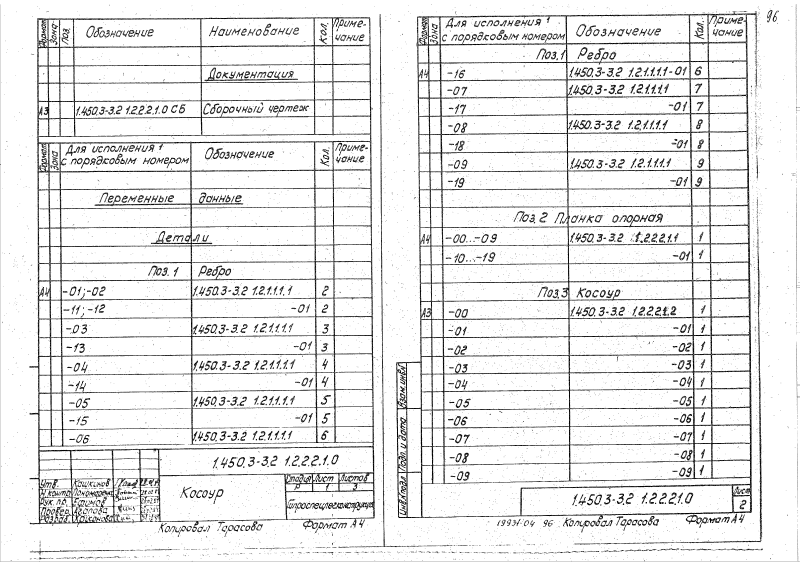 96
Формат Зона Поз. Обозначение Наименование Кол. Приме-чание
Документация
А3 1.450.3-3.2 1.2.2.2.1.0 СБ Сборочный чертеж
Формат Зона Для исполнения с порядковым номером Обозначение Кол. Приме-чание
Переменные данные
Детали
Поз. 1 Ребро
А4 -01; -02 1.450.3-3.2 1.2.1.1.1.1 2
-11; -12 -01 2
-03 1.450.3-3.2 1.2.1.1.1.1 3
-13 -01 3
-04 1.450.3-3.2 1.2.1.1.1.1 4
-14 -01 4
-05 1.450.3-3.2 1.2.1.1.1.1 5
-15 -01 5
-06 1.450.3-3.2 1.2.1.1.1.1 6
1.450.3-3.2 1.2.2.2.1.0
Утв. Кашкинов
Н.контр. Пономарева
Рук. пр. Ефимов
Провер.
Разраб.
Косоур
Стадия Лист Листов
Р 1 3
Гипроспецлегконструкция
Копировал Тарасова Формат А4
Формат Зона Для исполнения с порядковым номером Обозначение Кол. Приме-чание
Поз.1 Ребро
А4 -16 1.450.3-3.2 1.2.1.1.1.1-01 6
-07 1.450.3-3.2 1.2.1.1.1.1 7
-17 -01 7
-08 1.450.3-3.2 1.2.1.1.1.1 8
-18 -01 8
-09 1.450.3-3.2 1.2.1.1.1.1 9
-19 -01 9
Поз.2 Планка опорная
А4 -00...-09 1.450.3-3.2 1.2.2.2.1.1 1
-10...-19 -01 1
Поз.3 Косоур
А3 -00 1.450.3-3.2 1.2.2.2.1.2 1
-01 -01 1
-02 -02 1
-03 -03 1
-04 -04 1
-05 -05 1
-06 -06 1
-07 -07 1
-08 -08 1
-09 -09 1
Взам. инв.№
Подп. и дата
Инв.№ подл.
1.450.3-3.2 1.2.2.2.1.0
Лист
2
19931-04 96 Копировал Тарасова Формат А4